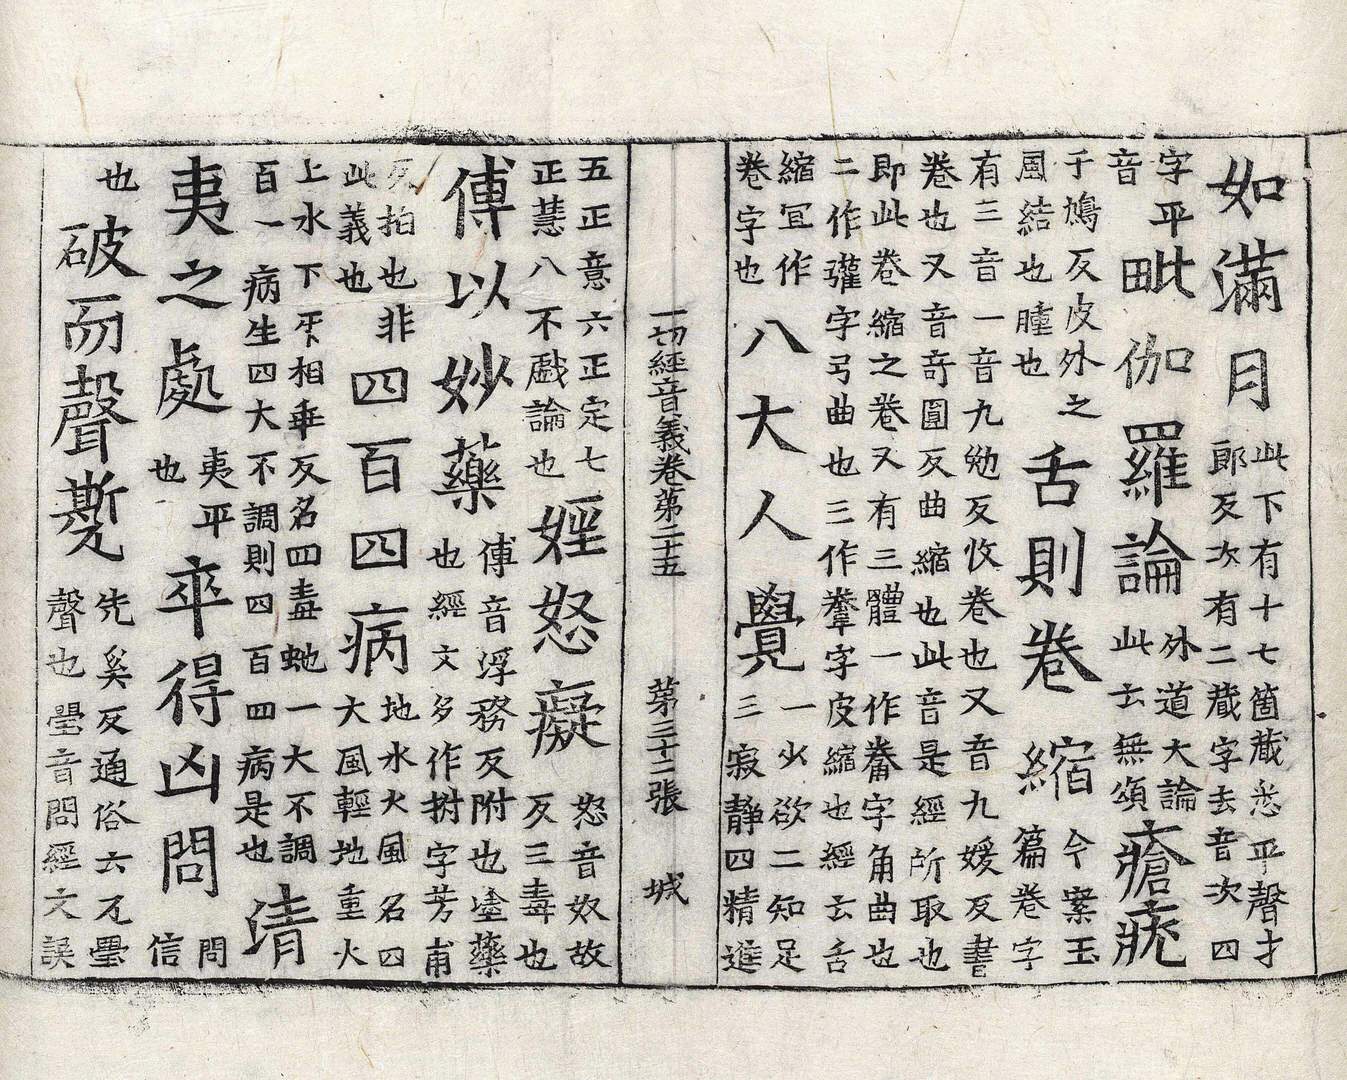 如滿月
此下有十七箇藏悉平聲才
郎反次有二藏字去音次四
字平
音
毗伽羅論
外道大論
此云無頌
瘡疣
于鳩反皮外之
風結也腫也
舌則卷縮
今案玉
篇卷字
有三音一音九勉反收卷也又音九媛反書
卷也又音奇圓反曲縮也此音是經所取也
即此卷縮之卷又有三體一作觠字角曲也
二作字弓曲也三作字皮縮也經云舌
縮宜作
卷字也
八大人覺
一少欲二知足
三寂靜四精進
一切經音義卷第二十五 第三十二張 城
五正意六正定七
正慧八不戲論也
婬怒癡
怒音奴故
反三毒也
傅以妙藥
傅音浮務反附也塗藥
也經文多作拊字芳甫
反拍也非
此義也
四百四病
地水火風名四
大風輕地重火
上水下不相乖反名四毒虵一大不調
百一病生四大不調則四百四病是也
清
夷之處
夷平
也
卒得凶問
問
信
也
破而聲
先奚反通俗文瓦璺
聲也璺音問經文誤